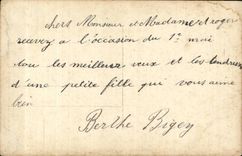 chers Monsieur et Madame et roger
recevez a l'occasion du 1er mai
tou les meilleurs veux et les tendresse
d'une petite fille qui vous aime
bien
Berthe Bigey